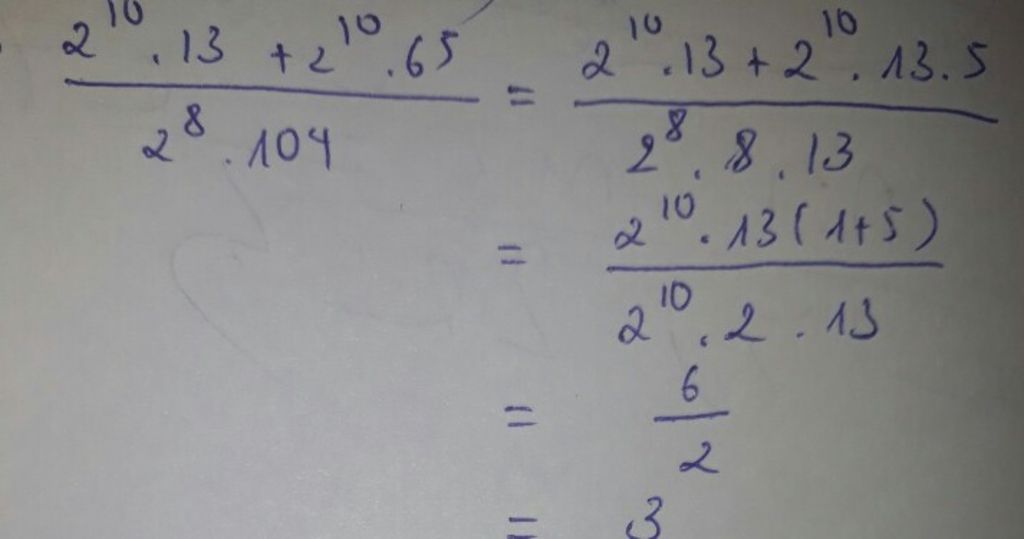 2^10 . 13 + 2^10 . 65 / 2^8 . 104 = 2^10 . 13 + 2^10 . 13 . 5 / 2^8 . 8 . 13
= 2^10 . 13 ( 1+5 ) / 2^10 . 2 . 13
= 6 / 2
= 3